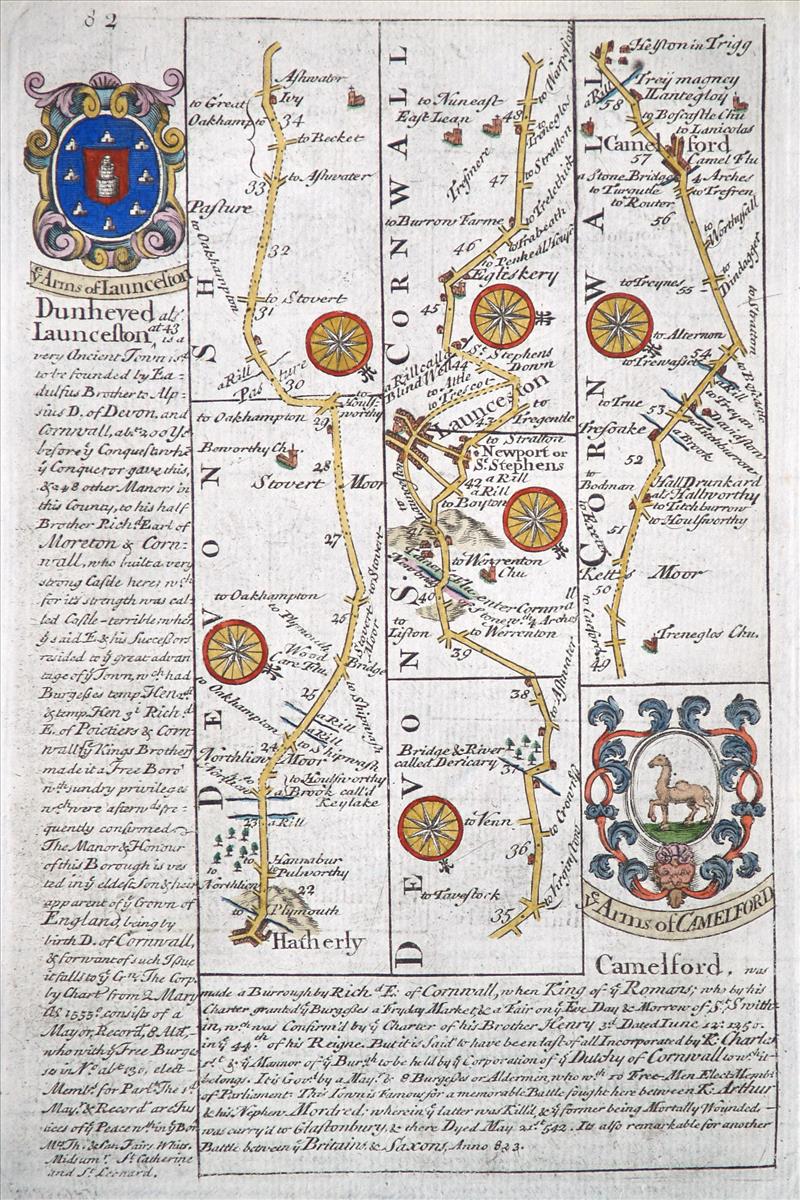 82
yᵉ Arms of Launceston
Dunheved als
Launceston, at 43 is a
very Ancient Town sᵈ
to be founded by Ea-
dulfus Brother to Alp-
sius D. of Devon, and
Cornwall, abᵗ 200 Yᵉ
before yᵉ Conquest whᵉ
yᵉ Conqueror gave this,
& 248 other Manors in
this County, to his half
Brother Richᵈ Earl of
Moreton & Corn-
wall, who built a very
strong Castle here; wᶜʰ
for its strength was cal-
led Castle-terrible; wher
yᵉ said E. & his Successors
resided to yᵉ great advan
tage of yᵉ Town, wᶜʰ had
Burgesses temp Hen 2ᵈ
& temp. Hen 3ᵈ Richᵈ
E. of Poictiers & Corn-
wall yᵉ Kings Brother
made it a Free Boro'
wᵗʰ sundry priviledges
wᶜʰ were afterwᵈˢ fre-
quently confirmed
The Manor & Honour
of this Borough is ves
ted in yᵉ eldest Son & heir
apparent of yᵉ Crown of
England, being by
birth D. of Cornwall,
& for want of such Issue
it falls to yᵉ Crⁿ. The Corp.
by Chartʳ from Q Mary
Aᵒ 1555 consists of a
Mayor, Recordʳ & Aldⁿ
who with yᵉ Free Burge
ses in Nᵒ abᵗ 130, elect
Membʳˢ for Parlᵗ. The sᵈ
Mayʳ & Recordʳ are Jus
tices of yᵉ Peace wᵗʰin yᵉ Boro
Mᵗˢ Th. & Sat. Fairs Whits.
Midsumʳ. Sᵗ Catherine
and Sᵗ Leonard.
DEVONSH
Ashwater
Ivy
to Great
Oakhampto
34
to Becket
33
to Ashwater
Pasture
to Oakhampton
32
to Stovert
31
a Rill
Pasture
30
to Houlsworthy
to Oakhampton
29
Boworthy Ch.
28
Stovert Moor
27
to Stovert
to Oakhampton
26
to Plymouth
Wood
Care Flu.
Stovert Moor
Bridge
25
to Shipwash
to Oakhampton
a Rill
a Rill
24
to Shipwash
Northlien Moor
to Houlsworthy
a Brook call'd
Keylake
23
a Rill
Hannabur
Pulworthy
to
Northlien
22
to Plymouth
Hatherly
CORNWALL
to Warpston
to Nuneast
East Lean
48
to Treneglos
to Stratton
Tresmere
47
to Trelethick
to Burrons Farme
to Trabeath
to Penheal House
46
Egleskery
45
Sᵗ Stephens
Down
a Rill call'd
Blind Well
44
to Attle
to Trescot
Launceston
43
to Tregentle
to Stratton
Newport or
Sᵗ Stephens
a Rill
42
a Rill
to Boyton
41
to Worrenton
Chu
enter Cornwall
40
Stone wᵗʰ 4 Arches
to
Lifton
to Werrenton
39
DEVONS.
38
to Ashwater
Bridge & River
called Dericary
37
to Cronford
to Venn
36
to Tavestock
to Virginstow
35
CORNWALL
Helston in Trigg
Treymagney
a Rill
58
Llantegloy
to Boscastle Chu
to Lanicolas
Camelford
57
Camel Flu
a Stone Bridge
4 Arches
to Turgutle
to Trefren
to Routor
56
to Worthyfall
to Treynes
55
to Dundagger
to Stratton
to Alternon
54
to Trewassa
a Rill
to Treyan
to True
53
Davidston
Tresoake
a Brook
to Titchburrow
52
to
Bodman
Hall Drunkard
als Hallworthy
to Titchburrow
to Houlsworthy
51
to Exeter
Ketts Moor
50
to Camelford
Treneglos Chu.
49
yᵉ Arms of CAMELFORD
Camelford, was
made a Burrough by Richᵈ E: of Cornwall, when King of yᵉ Romans; who by his
Charter granted yᵉ Burgesses a Fryday Market, & a Fair on yᵉ Eve Day & Morrow of Sᵗ Swith-
in, wᶜʰ was Confirm'd by yᵉ Charter of his Brother Henry 3ᵈ Dated Iune 12: 1250.
in yᵉ 44ᵗʰ of his Reigne. But it is Said to have been last of all Incorporated by K. Charles
1ˢᵗ & yᵉ Mannor of yᵉ Burgʰ to be held by yᵉ Corporation of yᵉ Dutchy of Cornwall to wᶜʰ it
belongs. It is Govᵈ by a Mayʳ & 8 Burgesses or Aldermen, who wᵗʰ 10 Free-Men Elect 2 Membˢ
of Parliament: This Town is Famous for a memorable Battle fought here between K. Arthur
& his Nephew Mordred: wherein yᵉ latter was Kill'd, & yᵉ former being Mortally Wounded,
was carry'd to Glastonbury, & there Dyed May 21ˢᵗ 542. Its also remarkable for another
Battle between yᵉ Britains, & Saxons, Anno 823.